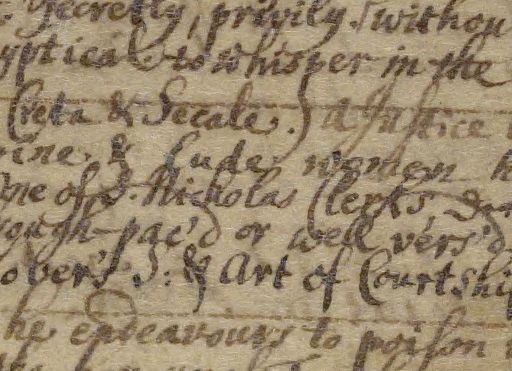 Secretly, privily, withou
yptical to whisper in the
Creta & Secale. A Justice
rine. & lude women
One of St. Nicholas Clerks
rough-pac'd or well vers'd
over's: & Art of Courtship
he endeavours to poison